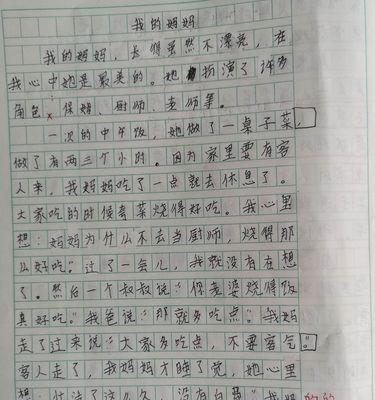 我的妈妈
我的妈妈，长得虽然不漂亮，在
我心中她是最美的。她扮演了许多
角色：保姆、厨师、老师等。
一次的中午饭，她做了一桌子菜，
做了有两三个小时。因为家里要有客
人来，我妈妈吃了一点就去休息了。
大家吃的时候夸菜烧得好吃。我心里
想：妈妈为什么不去当厨师，烧得那
么好吃。过了一会儿，我就没有在想
了。然后一个叔叔说“你老婆烧得饭
真好吃。”我爸说“那就多吃点。”我妈
走了过来说“大家多吃点，不要客气。”
客人走了，我妈妈才睡了觉，她心里
想：忙活了这么久，没有白费